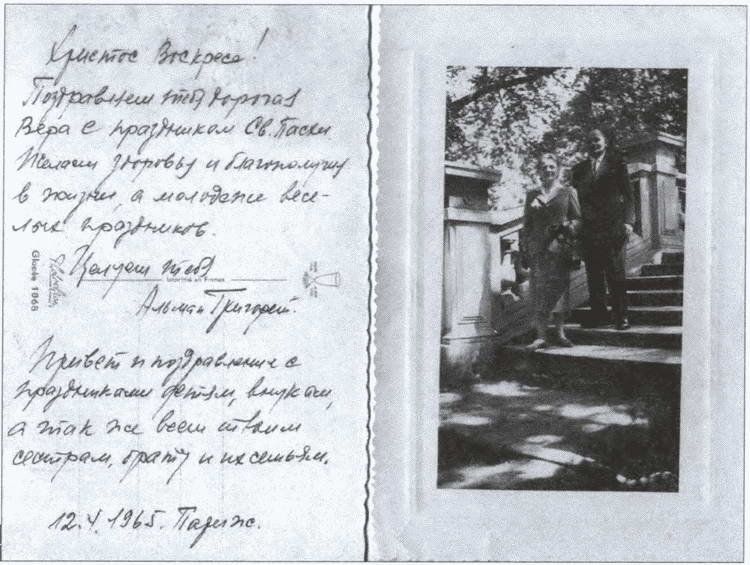 Христос Воскресе!
Поздравляем тебя дорогая
Вера с праздником Св. Пасхи.
Желаем здоровья и благополучия
в жизни, а молодежи весе-
лых праздников.
Целуем тебя
Imprimé en France
Glacés 1868
Альма и Григорий.
Привет и поздравление с
праздниками детям, внукам,
а так же всем твоим
сестрам, брату и их семьям.
12.4.1965. Париж.